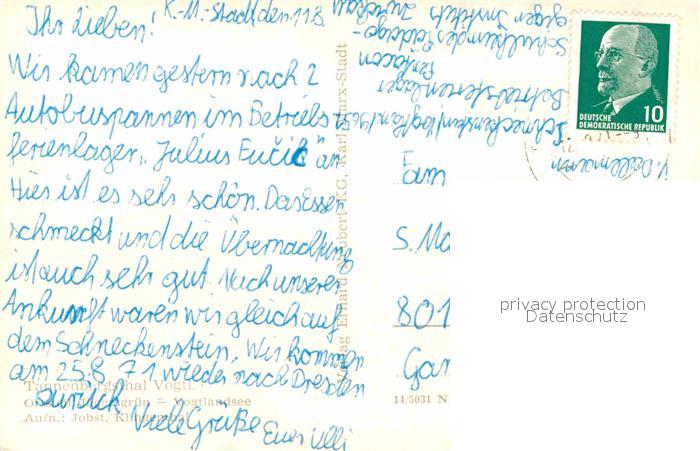 K.-M.-Stadt den 11.8.
Ihr Lieben!
Wir kamen gestern nach 2
Autobuspannen im Betriebs
ferienlager „Julius Fučik" an
Hier ist es sehr schön. Das Essen
schmeckt und die Übernachtung
ist auch sehr gut. Nach unserer
Ankunft waren wir gleich auf
dem Schneckenstein. Wir kommen
am 25.8.71 wieder nach Dresden
zurück. Viele Grüße Euer Ulli
Tannenbergsthal Vogtl.
Vogtlandsee
Aufn.: Jobst, Klingenthal
14/5031 N
Verlag Erhard Neubert KG, Karl-Marx-Stadt
10
DEUTSCHE
DEMOKRATISCHE REPUBLIK
Betriebsferienlager
Fam
S. Mo
801
Gar
privacy protection
Datenschutz